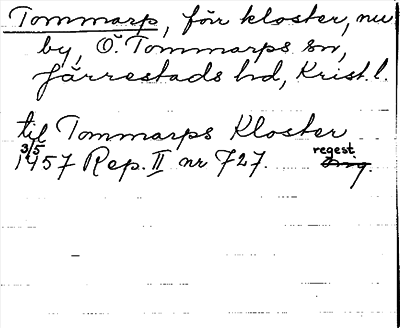 Tommarp, förr kloster, nu
by, Ö. Tommarps sn,
Järrestads hd, Krist. l.
til Tommarps Kloster
3/5 regest
1457 Rep. II nr 727. orig.